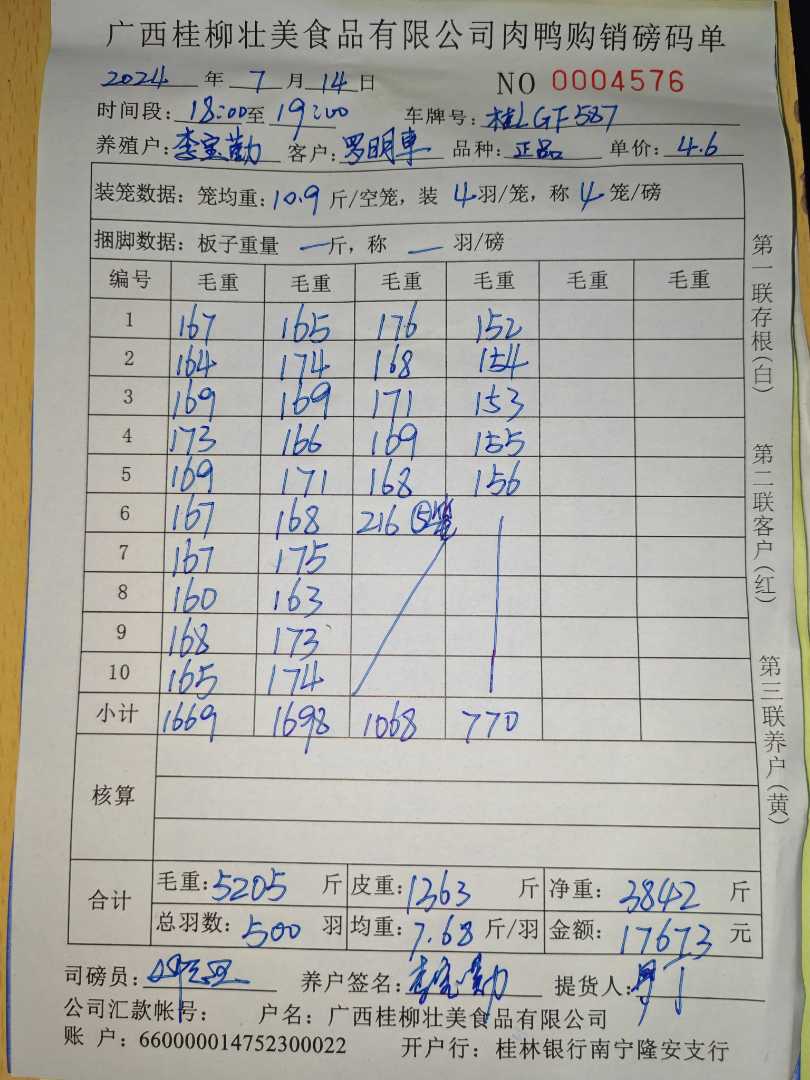 广西桂柳壮美食品有限公司肉鸭购销磅码单
2024 年 7 月 14 日 NO 0004576
时间段: 18:00 至 19:00 车牌号: 桂LGF587
养殖户: 李宝勤 客户: 罗明卓 品种: 正品 单价: 4.6
装笼数据: 笼均重: 10.9 斤/空笼，装 4 羽/笼，称 4 笼/磅
捆脚数据: 板子重量 — 斤，称 — 羽/磅
编号 毛重 毛重 毛重 毛重 毛重 毛重
1 167 165 176 152
2 164 174 168 154
3 169 169 171 153
4 173 166 169 155
5 169 171 168 156
6 167 168 216 ⑤笼
7 167 175
8 160 163
9 168 173
10 165 174
小计 1669 1698 1068 770
核算
合计 毛重: 5205 斤 皮重: 1363 斤 净重: 3842 斤
总羽数: 500 羽 均重: 7.68 斤/羽 金额: 17673 元
司磅员: 养户签名: 李宝勤 提货人:
公司汇款帐号: 户名: 广西桂柳壮美食品有限公司
账 户: 660000014752300022 开户行: 桂林银行南宁隆安支行
第一联存根(白)
第二联客户(红)
第三联养户(黄)